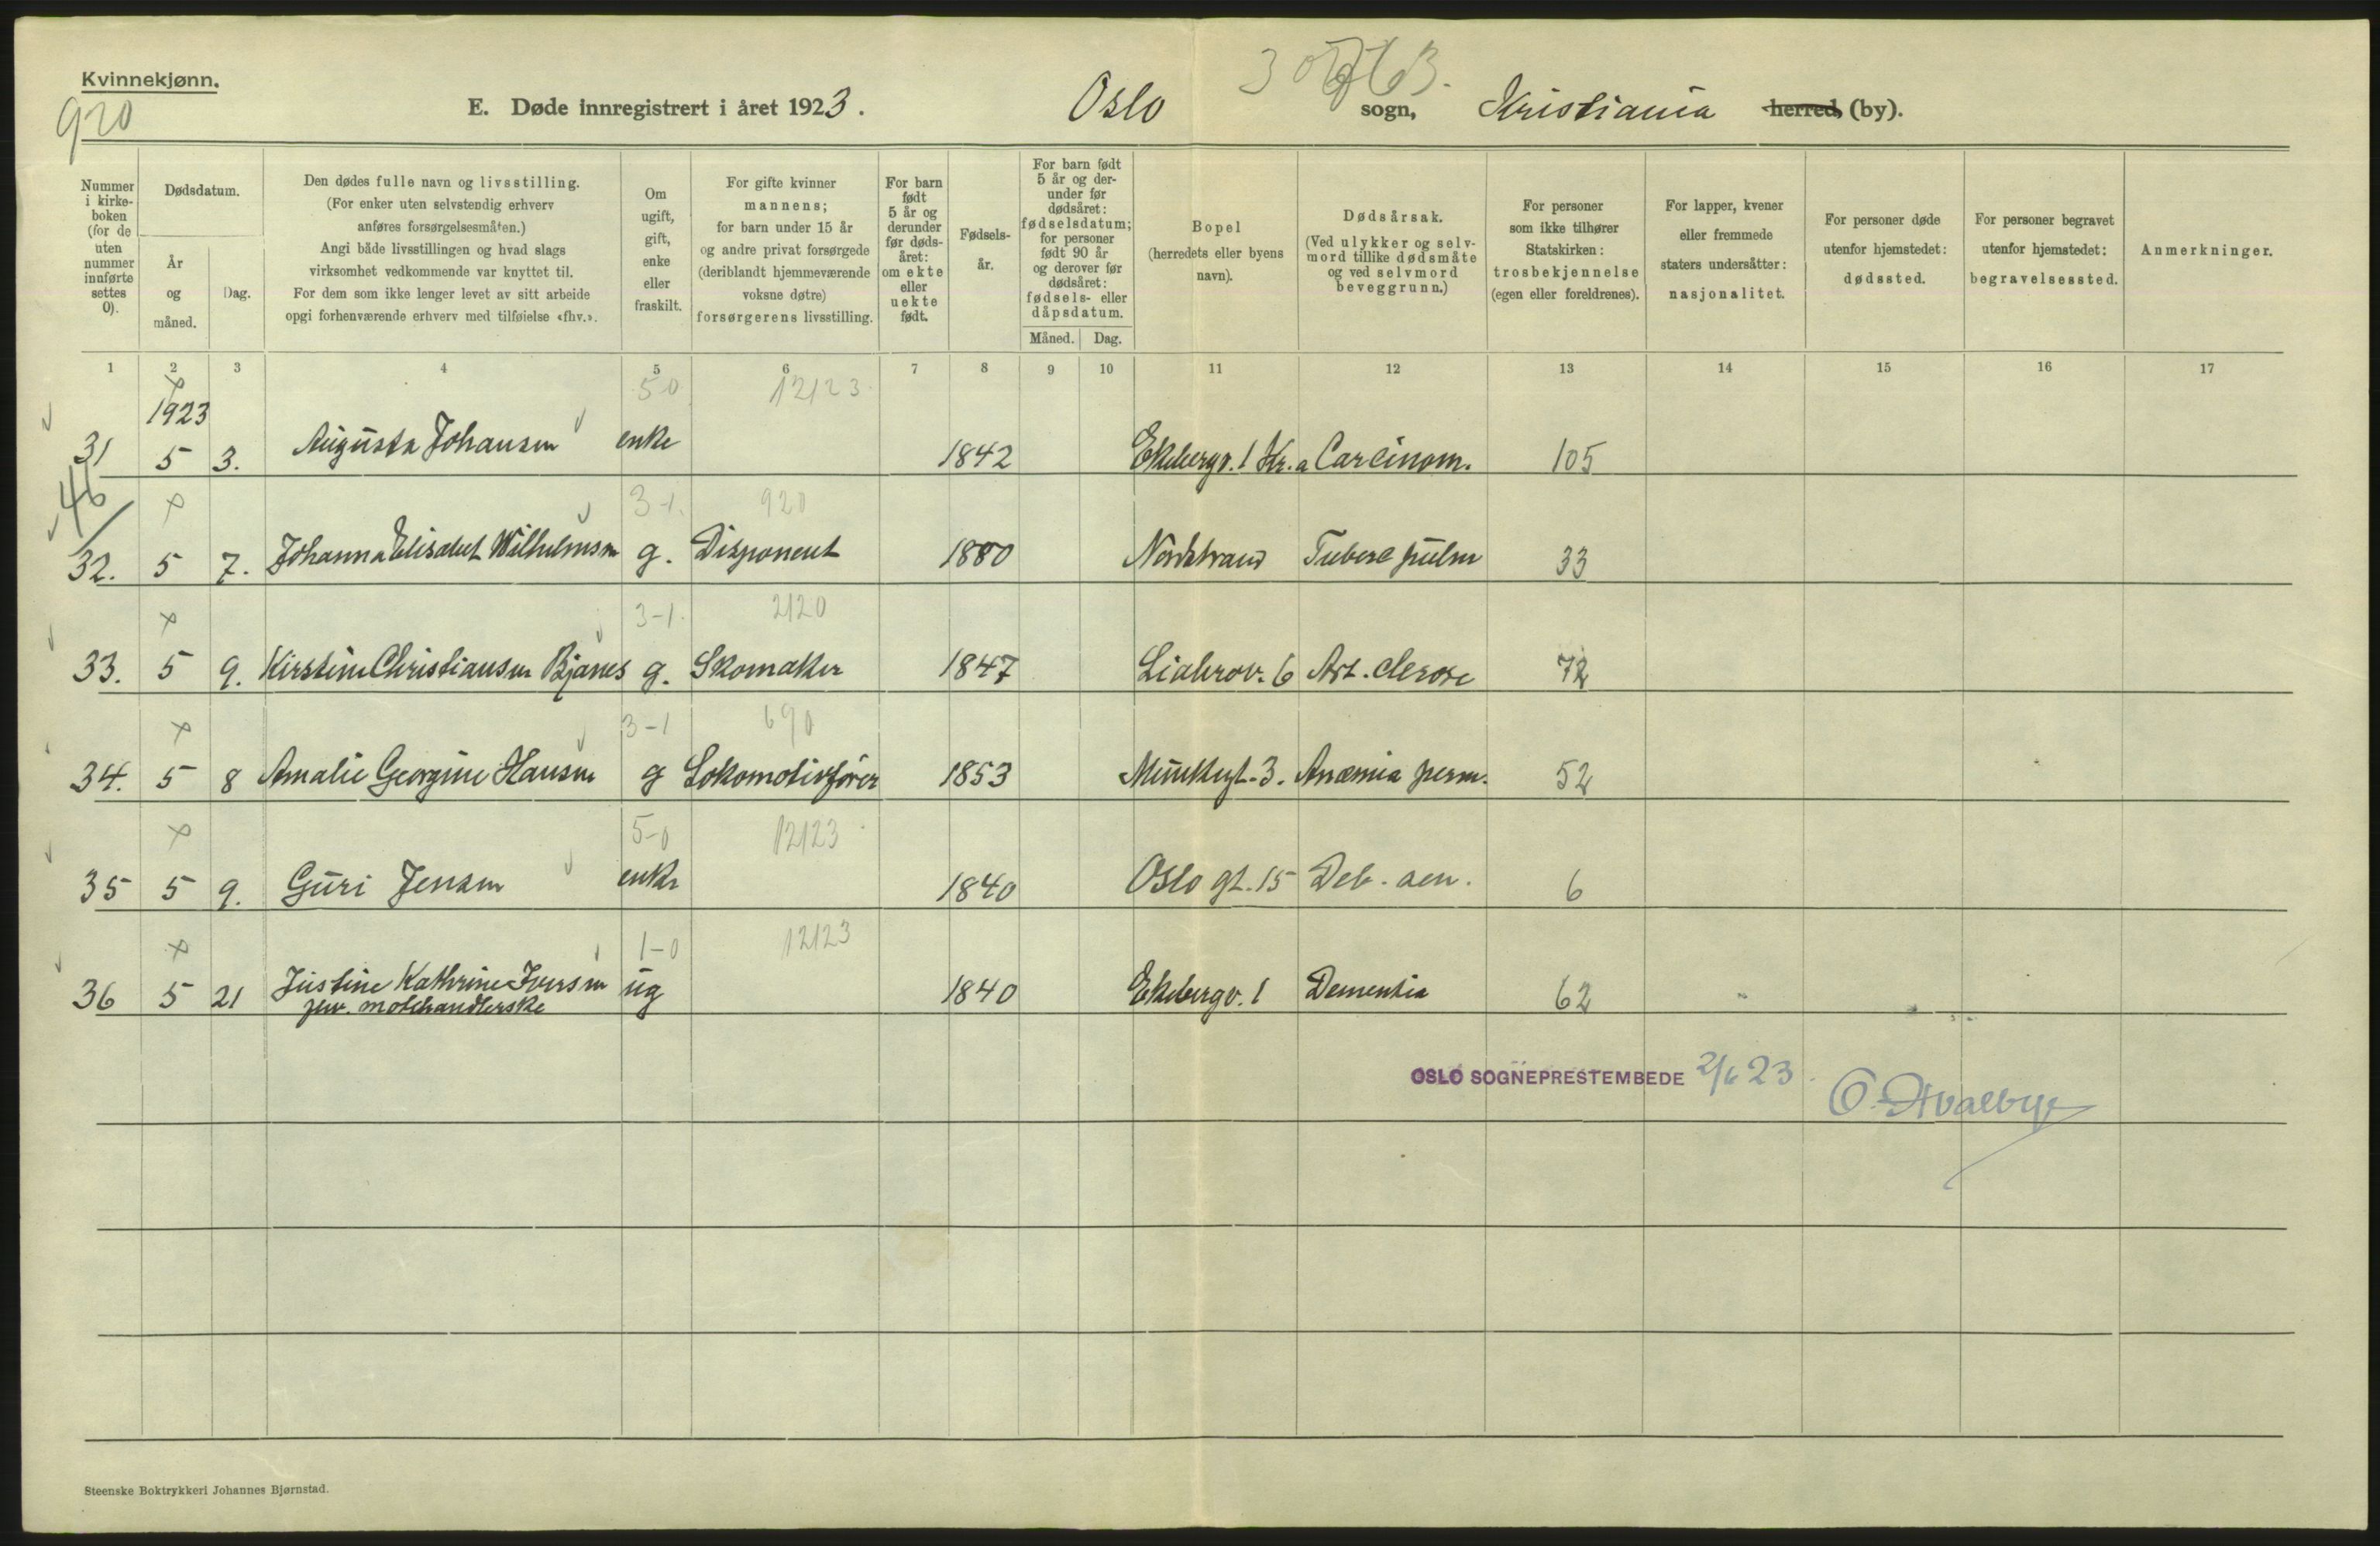 Kvinnekjønn.
920
E. Døde innregistrert i året 1923.
Oslo sogn, Kristiania herred, (by).
Nummer i kirke-boken (for de uten nummer innførte settes 0).
Dødsdatum.
År og måned.
Dag.
Den dødes fulle navn og livsstilling.
(For enker uten selvstendig erhverv
anføres forsørgelsesmåten.)
Angi både livsstillingen og hvad slags
virksomhet vedkommende var knyttet til.
For dem som ikke lenger levet av sitt arbeide
opgi forhenværende erhverv med tilføielse «fhv.».
Om ugift, gift, enke eller fraskilt.
For gifte kvinner
mannens;
for barn under 15 år
og andre privat forsørgede
(deriblandt hjemmeværende
voksne døtre)
forsørgerens livsstilling.
For barn født 5 år og derunder før døds-året: om ekte eller uekte født.
Fødsels-år.
For barn født 5 år og der-under før dødsåret: fødselsdatum; for personer født 90 år og derover før dødsåret: fødsels- eller dåpsdatum.
Måned. Dag.
Bopel
(herredets eller byens
navn).
Dødsårsak.
(Ved ulykker og selv-
mord tillike dødsmåte
og ved selvmord
beveggrunn.)
For personer
som ikke tilhører
Statskirken:
trosbekjennelse
(egen eller foreldrenes).
For lapper, kvener
eller fremmede
staters undersåtter:
nasjonalitet.
For personer døde
utenfor hjemstedet:
dødssted.
For personer begravet
utenfor hjemstedet:
begravelsessted.
Anmerkninger.
1 2 3 4 5 6 7 8 9 10 11 12 13 14 15 16 17
1923 5-0 12123
31 5 3. Augusta Johansen enke 1842 Ekebergv. 1 Kr.a Carcinom. 105
46
3-1. 920
32. 5 7. Johanna Elisabet Wilhelmsen g. Disponent 1880 Nordstrand Tuberc pulm 33
3-1. 2120
33. 5 9. Kirstine Christiansen Bjanes g. Skomaker 1847 Liabrov. 6 Art. sclerose 72
3-1 690
34. 5 8 Amalie Georgine Hansen g Lokomotivfører 1853 Munkegt. 3. Anæmia pern. 52
5-0 12123
35 5 9. Guri Jensen enke 1840 Oslo gt. 15 Deb. sen. 6
1-0 12123
36 5 21 Justine Kathrine Iversen ug 1840 Ekebergv. 1 Dementia 62
fhv. motehandlerske
OSLO SOGNEPRESTEMBEDE 2/6 23.
Steenske Boktrykkeri Johannes Bjørnstad.